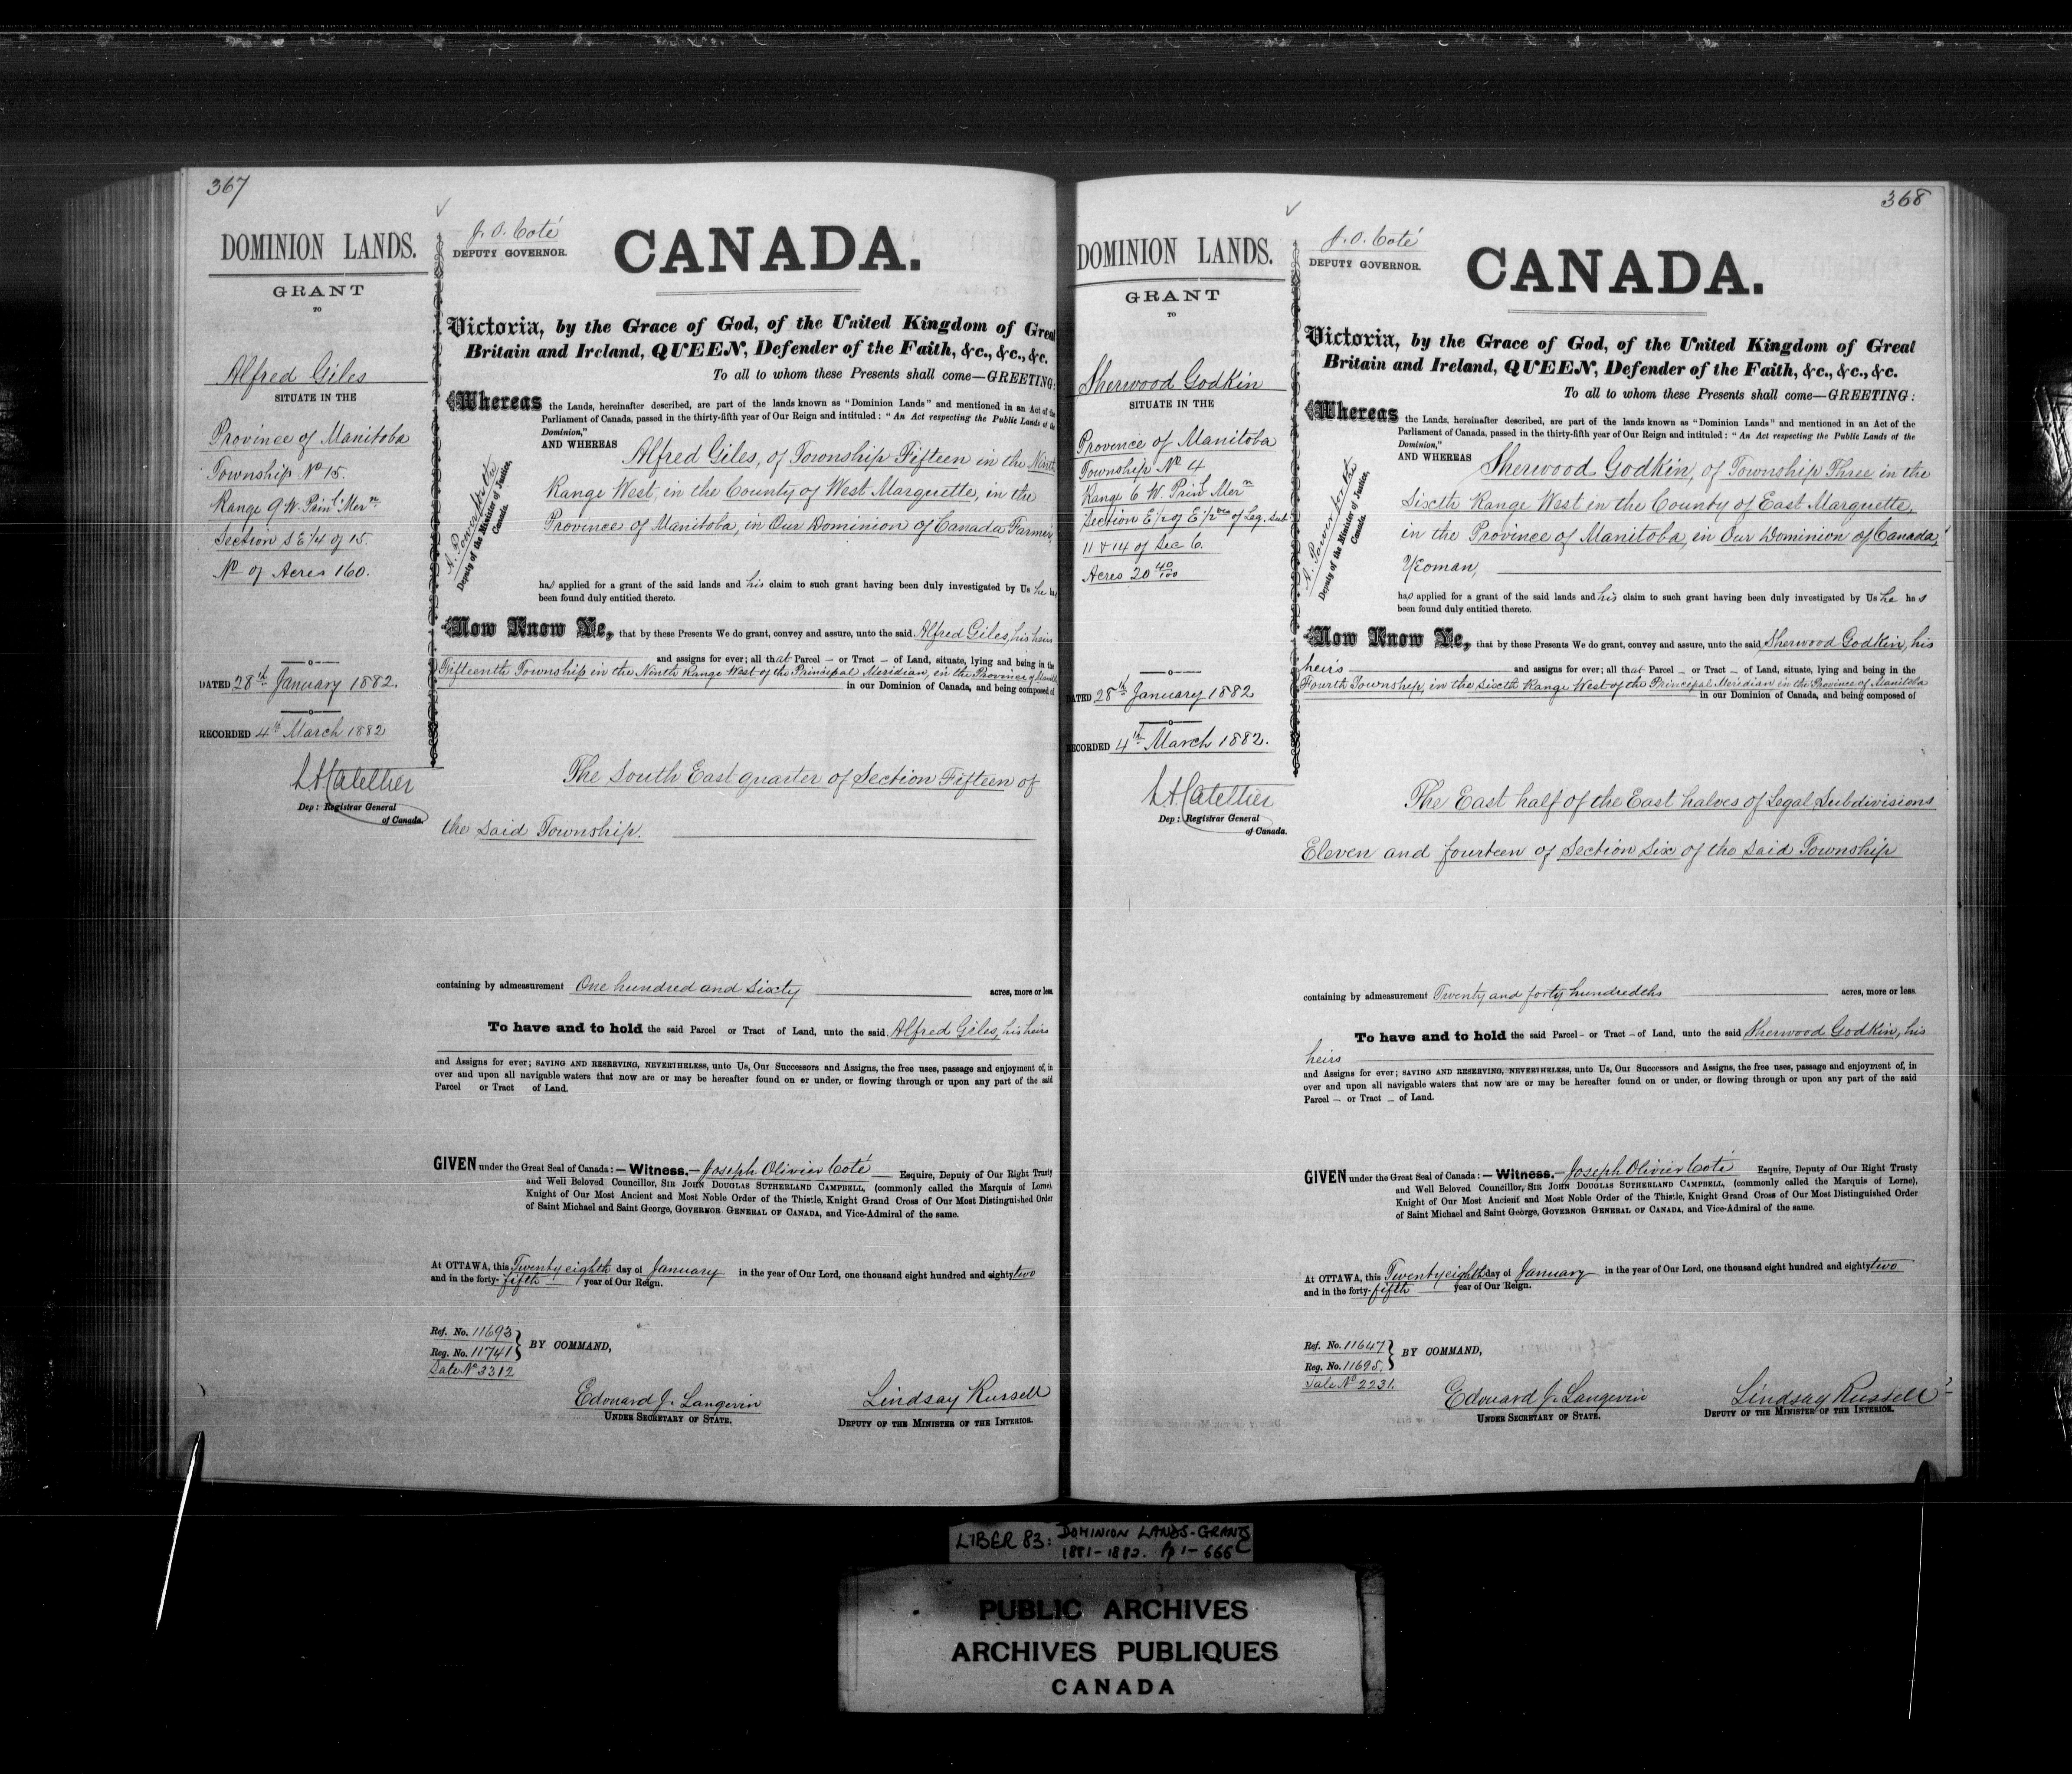 367
DOMINION LANDS.
GRANT
TO
Alfred Giles
SITUATE IN THE
Province of Manitoba
Township No 15.
Range 9 W. Prinl Mern.
Section S E 1/4 of 15.
No of Acres 160.
DATED 28th January 1882.
RECORDED 4th March 1882
L.A. Catellier
Dep: Registrar General
of Canada.
J. O. Coté
DEPUTY GOVERNOR.
CANADA.
Victoria, by the Grace of God, of the United Kingdom of Great
Britain and Ireland, QUEEN, Defender of the Faith, &c., &c., &c.
To all to whom these Presents shall come—GREETING:
Whereas the Lands, hereinafter described, are part of the lands known as "Dominion Lands" and mentioned in an Act of the
Parliament of Canada, passed in the thirty-fifth year of Our Reign and intituled: "An Act respecting the Public Lands of the
Dominion,"
AND WHEREAS Alfred Giles, of Township Fifteen in the Ninth
Range West, in the County of West Marquette, in the
Province of Manitoba, in Our Dominion of Canada Farmer,
A. Power for the
Deputy of the Minister of Justice,
Canada.
has applied for a grant of the said lands and his claim to such grant having been duly investigated by Us he has
been found duly entitled thereto.
Now Know Ye, that by these Presents We do grant, convey and assure, unto the said Alfred Giles, his heirs
and assigns for ever; all that Parcel – or Tract – of Land, situate, lying and being in the
Fifteenth Township in the Ninth Range West of the Principal Meridian, in the Province of Manitoba
in our Dominion of Canada, and being composed of
The South East quarter of Section Fifteen of
the said Township.
containing by admeasurement One hundred and Sixty acres, more or less.
To have and to hold the said Parcel or Tract of Land, unto the said Alfred Giles, his heirs
and Assigns for ever; SAVING AND RESERVING, NEVERTHELESS, unto Us, Our Successors and Assigns, the free uses, passage and enjoyment of, in
over and upon all navigable waters that now are or may be hereafter found on or under, or flowing through or upon any part of the said
Parcel or Tract of Land.
GIVEN under the Great Seal of Canada:—Witness,—Joseph Olivier Coté Esquire, Deputy of Our Right Trusty
and Well Beloved Councillor, SIR JOHN DOUGLAS SUTHERLAND CAMPBELL, (commonly called the Marquis of Lorne),
Knight of Our Most Ancient and Most Noble Order of the Thistle, Knight Grand Cross of Our Most Distinguished Order
of Saint Michael and Saint George, GOVERNOR GENERAL OF CANADA, and Vice-Admiral of the same.
At OTTAWA, this Twenty eighth day of January in the year of Our Lord, one thousand eight hundred and eighty two
and in the forty-fifth year of Our Reign.
Ref. No. 11693
Reg. No. 11741
BY COMMAND,
Sale No 3312
Edouard J. Langevin
UNDER SECRETARY OF STATE.
Lindsay Russell
DEPUTY OF THE MINISTER OF THE INTERIOR.
368
DOMINION LANDS.
GRANT
TO
Sherwood Godkin
SITUATE IN THE
Province of Manitoba
Township No 4
Range 6 W. Prinl Mern
Section E 1/2 of E 1/2ves of Leg. Sub
11 & 14 of Sec 6.
Acres 20 40/100
DATED 28th January 1882
RECORDED 4th March 1882.
L.A. Catellier
Dep: Registrar General
of Canada.
J. O. Coté
DEPUTY GOVERNOR.
CANADA.
Victoria, by the Grace of God, of the United Kingdom of Great
Britain and Ireland, QUEEN, Defender of the Faith, &c., &c., &c.
To all to whom these Presents shall come—GREETING:
Whereas the Lands, hereinafter described, are part of the lands known as "Dominion Lands" and mentioned in an Act of the
Parliament of Canada, passed in the thirty-fifth year of Our Reign and intituled: "An Act respecting the Public Lands of the
Dominion,"
AND WHEREAS Sherwood Godkin, of Township Three in the
Sixth Range West in the County of East Marquette,
in the Province of Manitoba, in Our Dominion of Canada,
Yeoman,
A. Power for the
Deputy of the Minister of Justice,
Canada.
has applied for a grant of the said lands and his claim to such grant having been duly investigated by Us he has
been found duly entitled thereto.
Now Know Ye, that by these Presents We do grant, convey and assure, unto the said Sherwood Godkin, his
heirs and assigns for ever; all that Parcel – or Tract – of Land, situate, lying and being in the
Fourth Township, in the Sixth Range West of the Principal Meridian in the Province of Manitoba
in our Dominion of Canada, and being composed of
The East half of the East halves of Legal Subdivisions
Eleven and fourteen of Section Six of the said Township
containing by admeasurement Twenty and forty hundredths acres, more or less.
To have and to hold the said Parcel – or Tract – of Land, unto the said Sherwood Godkin, his
heirs
and Assigns for ever; SAVING AND RESERVING, NEVERTHELESS, unto Us, Our Successors and Assigns, the free uses, passage and enjoyment of, in
over and upon all navigable waters that now are or may be hereafter found on or under, or flowing through or upon any part of the said
Parcel – or Tract – of Land.
GIVEN under the Great Seal of Canada:—Witness,—Joseph Olivier Coté Esquire, Deputy of Our Right Trusty
and Well Beloved Councillor, SIR JOHN DOUGLAS SUTHERLAND CAMPBELL, (commonly called the Marquis of Lorne),
Knight of Our Most Ancient and Most Noble Order of the Thistle, Knight Grand Cross of Our Most Distinguished Order
of Saint Michael and Saint George, GOVERNOR GENERAL OF CANADA, and Vice-Admiral of the same.
At OTTAWA, this Twenty eighth day of January in the year of Our Lord, one thousand eight hundred and eighty two
and in the forty-fifth year of Our Reign.
Ref. No. 11647
Reg. No. 11695.
BY COMMAND,
Sale No 2231.
Edouard J. Langevin
UNDER SECRETARY OF STATE.
Lindsay Russell
DEPUTY OF THE MINISTER OF THE INTERIOR.
LIBER 83: DOMINION LANDS-GRANTS
1881-1882. Pp 1-666C
PUBLIC ARCHIVES
ARCHIVES PUBLIQUES
CANADA